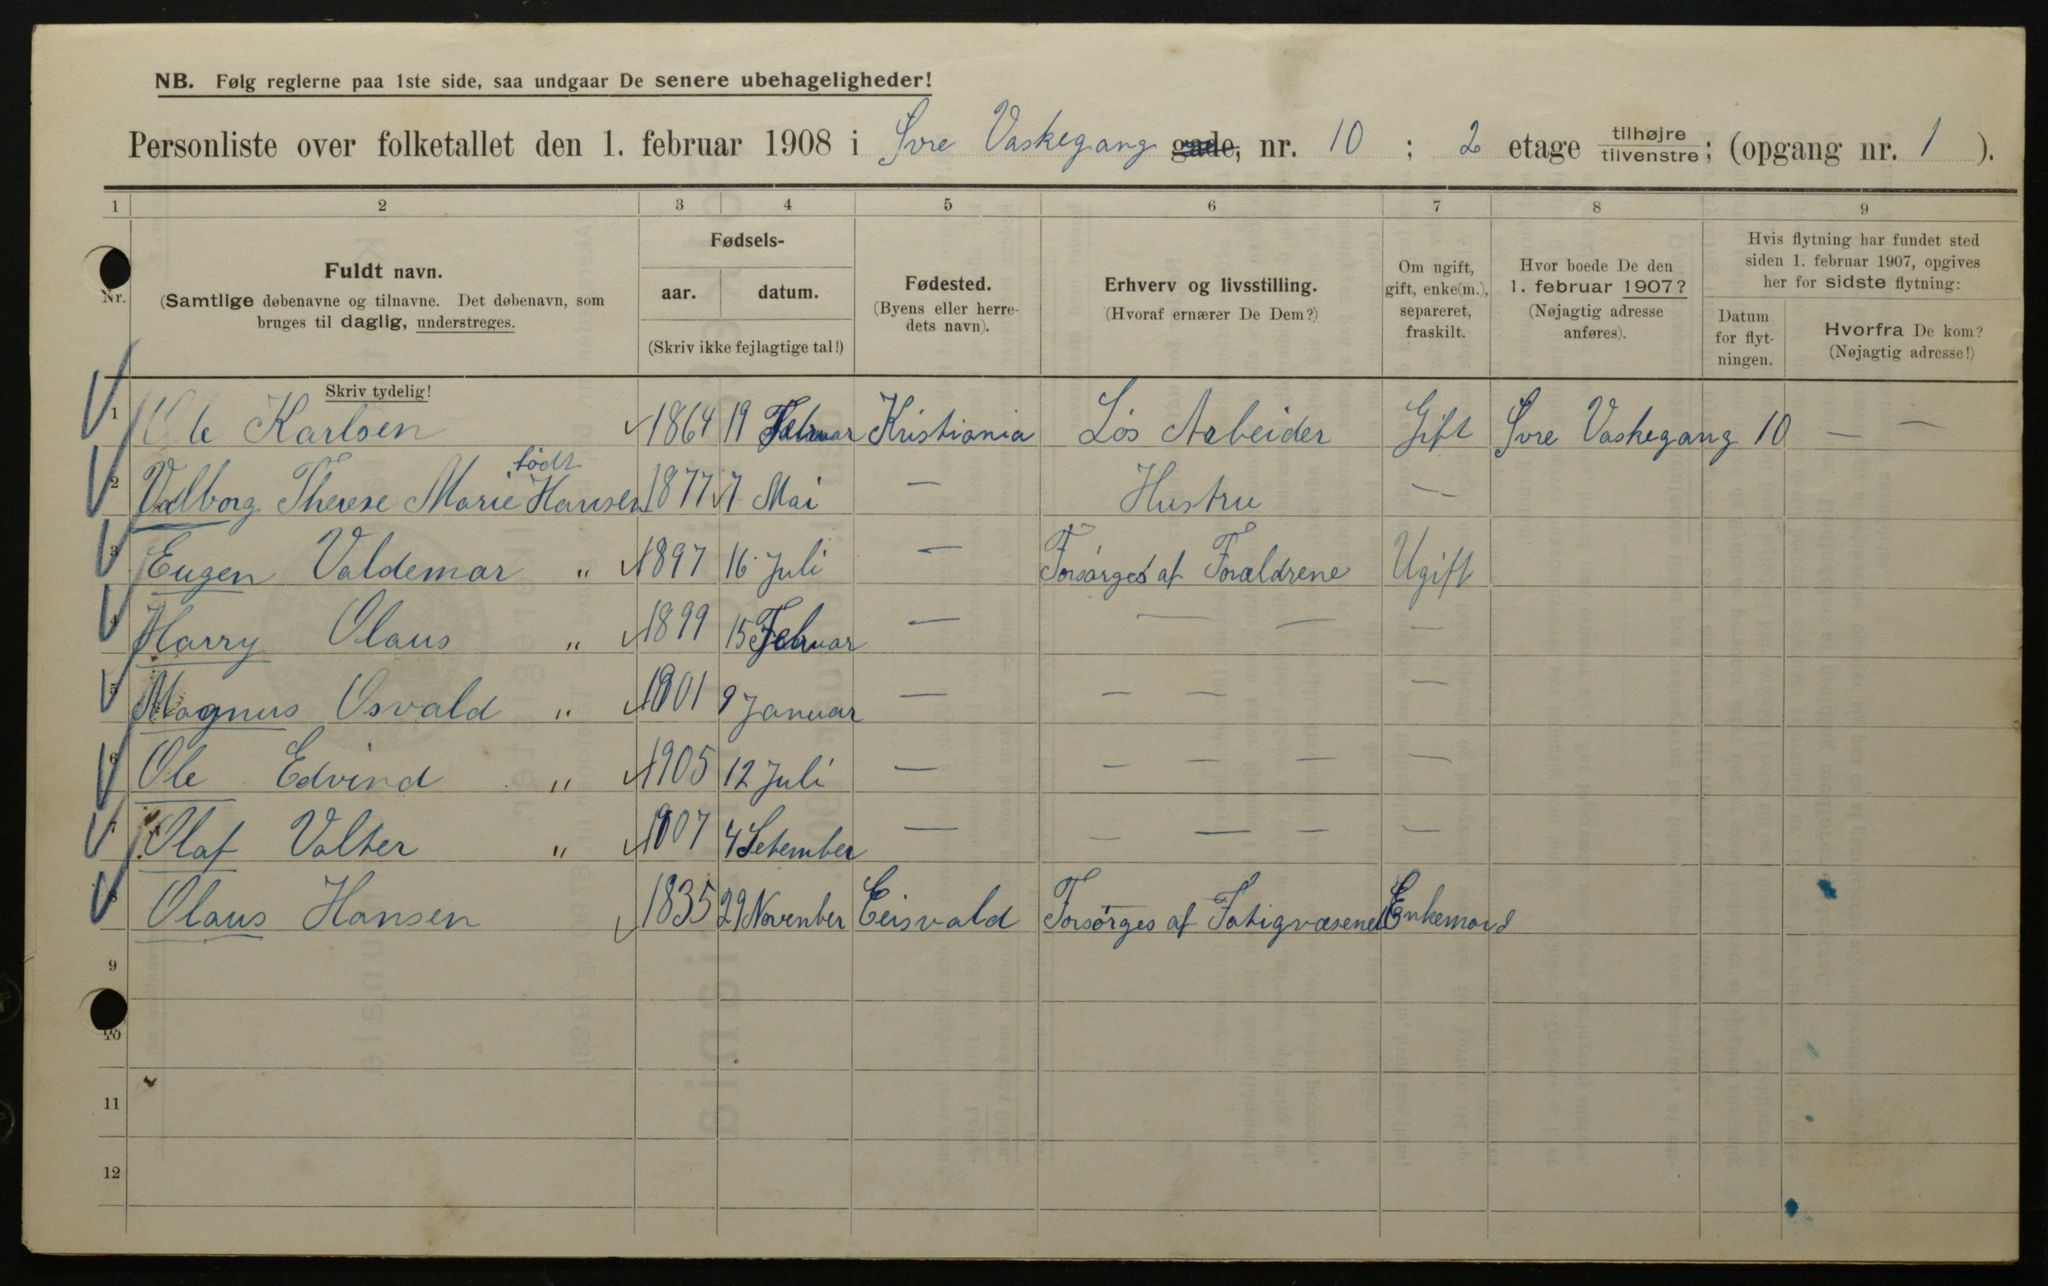 NB. Følg reglerne paa 1ste side, saa undgaar De senere ubehageligheder!
Personliste over folketallet den 1. februar 1908 i Svre Vaskegang gade, nr. 10 ; 2 etage tilhøjre tilvenstre; (opgang nr. 1 ).
1 2 3 4 5 6 7 8 9
Nr.
Fuldt navn.
(Samtlige døbenavne og tilnavne. Det døbenavn, som
bruges til daglig, understreges.
Skriv tydelig!
Fødsels-
aar. datum.
(Skriv ikke fejlagtige tal!)
Fødested.
(Byens eller herre-
dets navn).
Erhverv og livsstilling.
(Hvoraf ernærer De Dem?)
Om ugift,
gift, enke(m.),
separeret,
fraskilt.
Hvor boede De den
1. februar 1907?
(Nøjagtig adresse
anføres).
Hvis flytning har fundet sted
siden 1. februar 1907, opgives
her for sidste flytning:
Datum
for flyt-
ningen.
Hvorfra De kom?
(Nøjagtig adresse!)
1 Ole Karlsen 1864 19 Februar Kristiania Løs Arbeider Gift Svre Vaskegang 10 — —
født
2 Valborg Therese Marie Hansen 1877 7 Mai — Hustru —
3 Eugen Valdemar " 1897 16 Juli — Forsørges af Forældrene Ugift
4 Harry Olaus " 1899 15 Februar — — — —
5 Magnus Osvald " 1901 9 Januar — — — —
6 Ole Edvind " 1905 12 Juli — — — — —
7 Olaf Valter " 1907 4 Setember — — — — —
8 Olaus Hansen 1835 29 November Eisvald Forsørges af Fatigvæsenet Enkemand
9
10
11
12